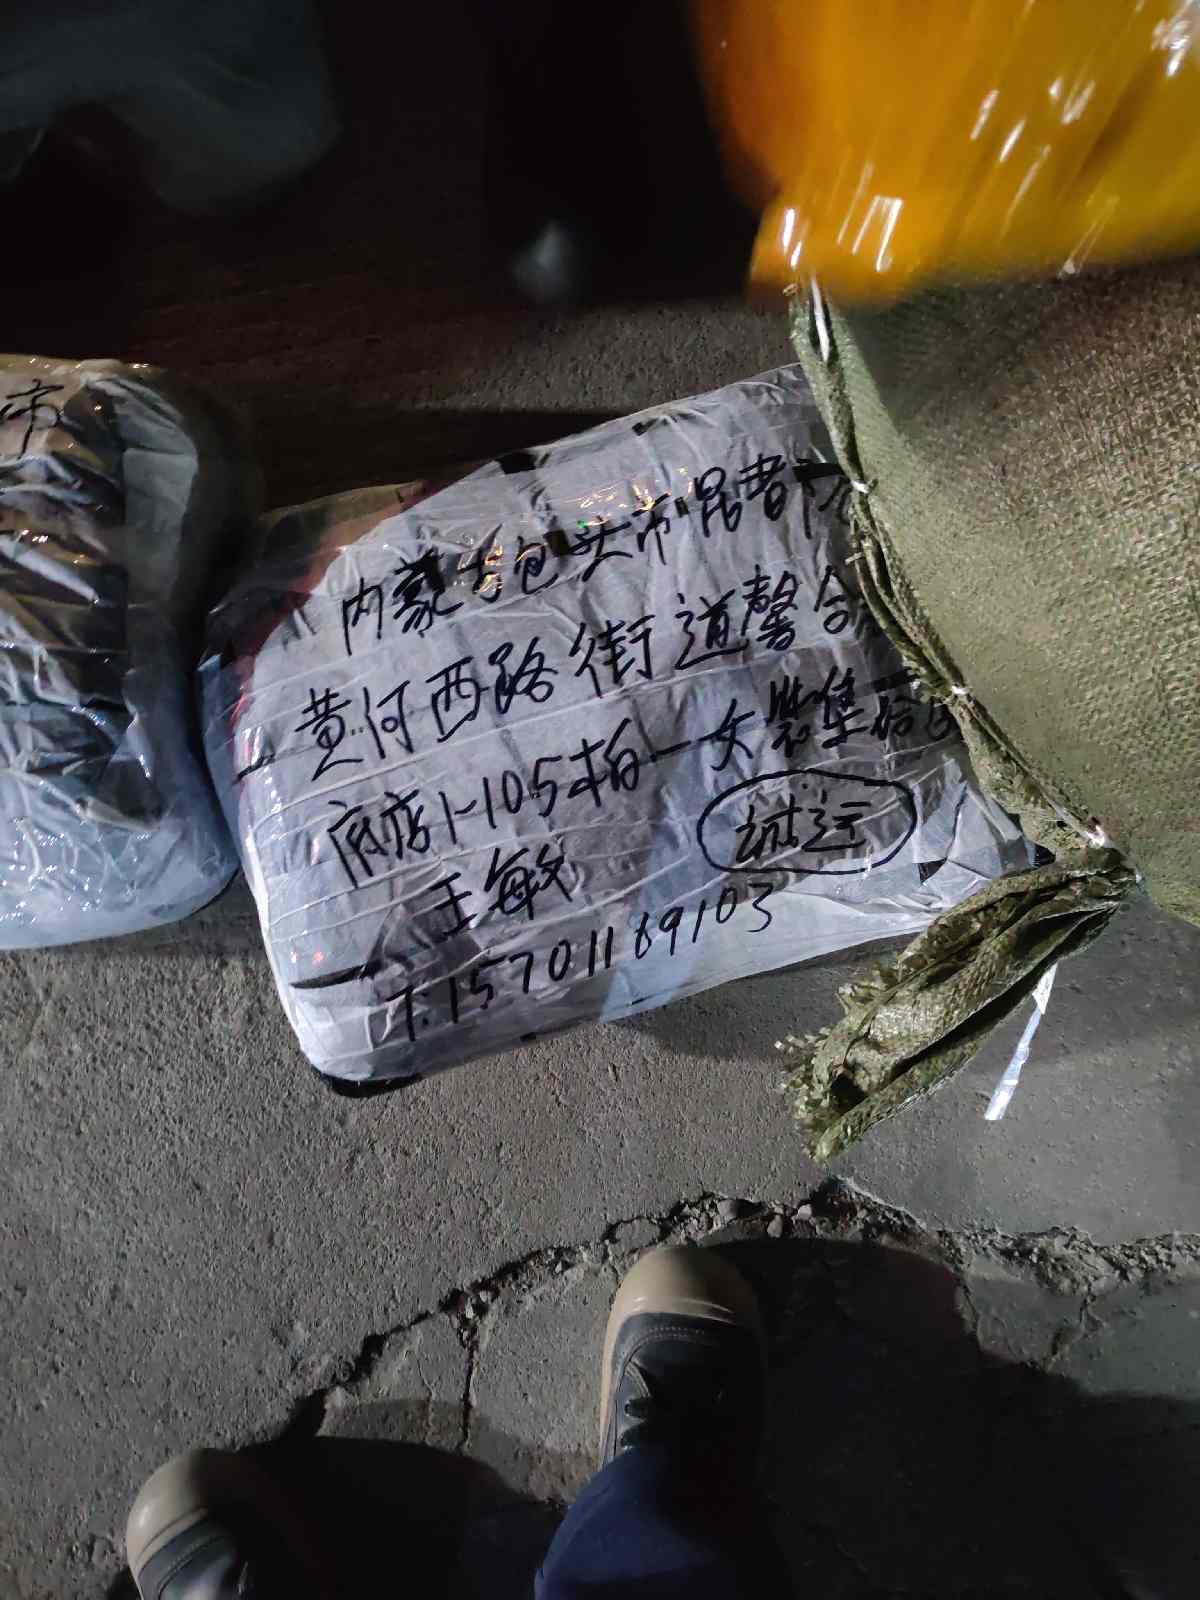 市
内蒙古包头市昆者
黄河西路街道馨合
底店1-105柏一女装集合
诚运
王敏
T:15701169103